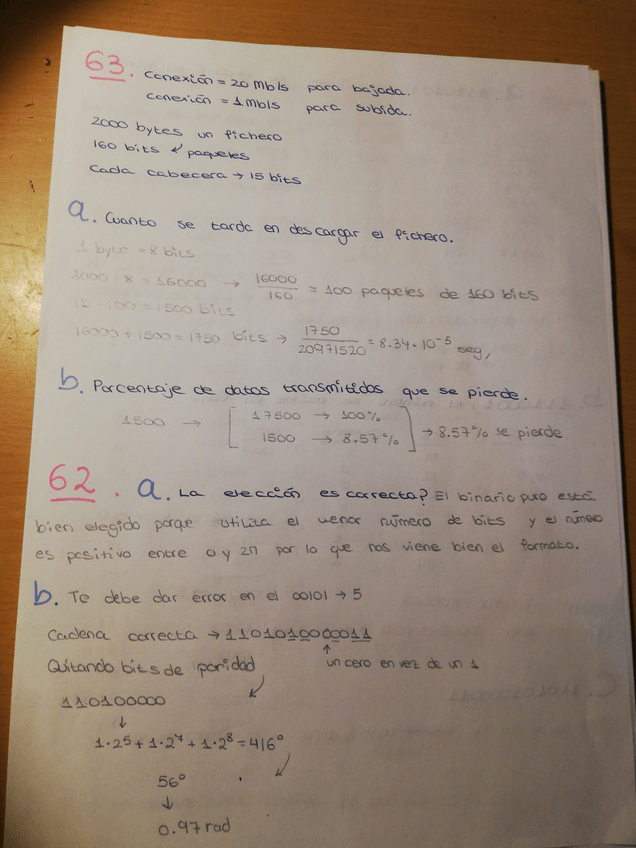 63. Conexión = 20 Mb/s para bajada.
conexión = 1 Mb/s para subida.
2000 bytes un fichero
160 bits ↙ paquetes
Cada cabecera → 15 bits
a. Cuanto se tarda en descargar el fichero.
1 byte = 8 bits
2000 · 8 = 16000 → 16000/160 = 100 paquetes de 160 bits
· 100 = 1500 bits
16000 + 1500 = 1750 bits → 1750/20971520 = 8.34 · 10⁻⁵ seg,
b. Porcentaje de datos transmitidos que se pierde.
1500 → [ 17500 → 100%
1500 → 8.57% ] → 8.57% se pierde
62. a. La elección es correcta? El binario puro está
bien elegido porque utiliza el menor número de bits y el número
es positivo entre 0 y 2π por lo que nos viene bien el formato.
b. Te debe dar error en el 00101 → 5
Cadena correcta → 1101010000011
↑
Quitando bits de paridad un cero en vez de un 1
110100000
↓
1·2⁵ + 1·2⁷ + 1·2⁸ = 416°
56°
↓
0.97 rad